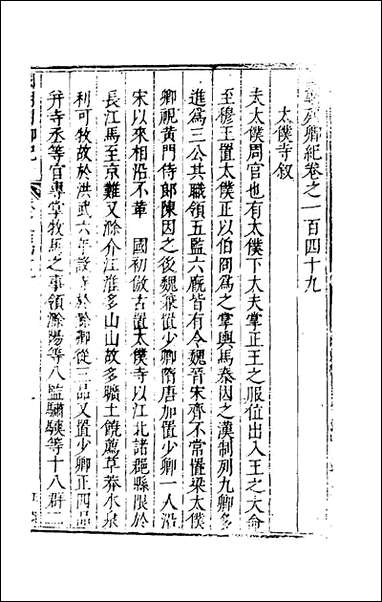 列卿紀卷之一百四十九
太僕寺叙
夫太僕周官也有太僕下大夫掌正王之服位出入王之大命
至穆王置太僕正以伯冏為之掌輿馬秦因之漢制列九卿多
進為三公其職領五監六廐皆有令魏晉宋齊不常置梁太僕
卿視黃門侍郎陳因之後魏兼置少卿隋唐加置少卿一人沿
宋以來相沿不革 國初倣古置太僕寺以江北諸郡縣限於
長江馬至京難又滁介江淮多山山故多曠土饒薦草莽水泉
利可牧故於洪武六年設寺於滁卿從三品又置少卿正四品
幷寺丞等官專掌牧馬之事領滁陽等八監驌驥等十八群二